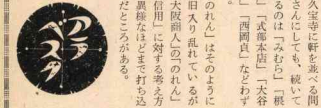 久宝寺に軒を並べる問
さんにしても、続いて
るのは「みむら」「根
」「式部本店」「大谷
」「西岡貞」などわず

のれん」はそのように
旧入り乱れているが
大阪商人の「のれん」
信用」に対する考え方
異様なほどまで打ち込
だところがある。